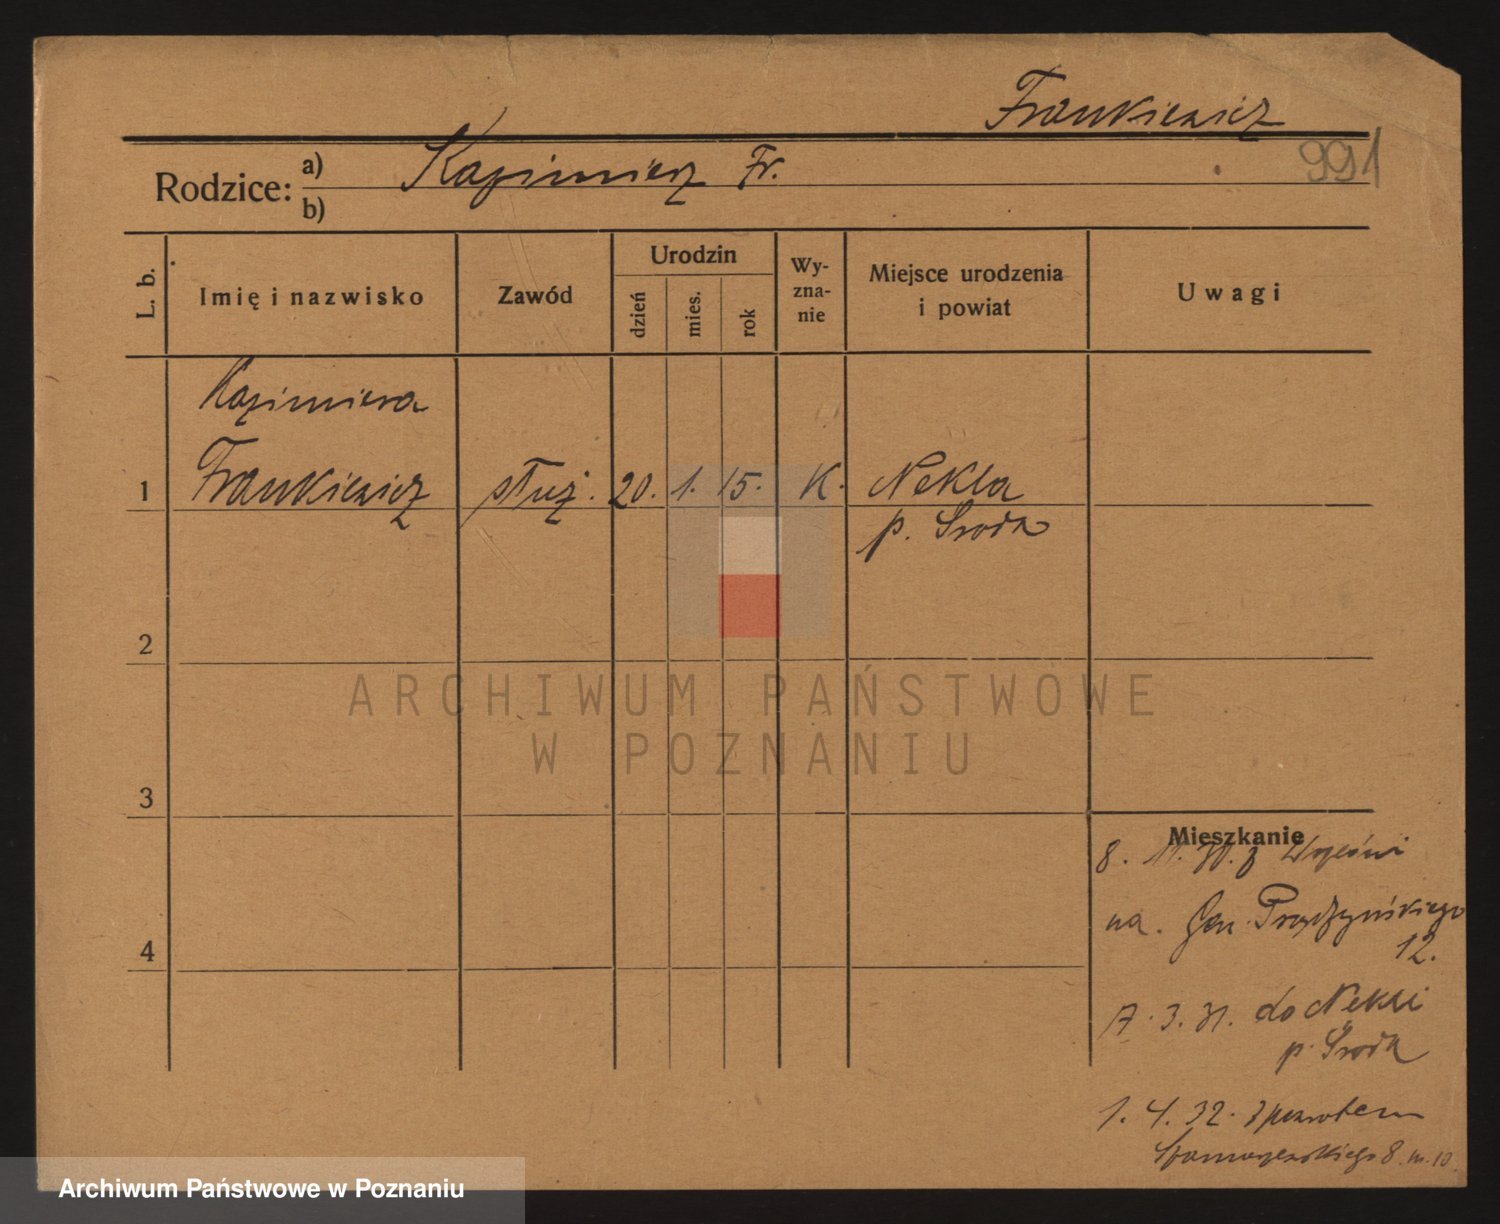 Frankiewicz
991
Rodzice: a) Kazimierz Fr.
b)
L. b.
Imię i nazwisko
Zawód
Urodzin
dzień
mies.
rok
Wy-
zna-
nie
Miejsce urodzenia
i powiat
Uwagi
Kazimiera
1 Frankiewicz służ. 20. 1. 15. K. Nekla
p. Środa
2
ARCHIWUM PAŃSTWOWE
W POZNANIU
3
Mieszkanie
8. 11. 30. z
4
na. Gen. Prądzyńskiego
12.
7. 3. 31. do Nekli
p. Środa
1. 4. 32. z powrotem
8 m. 10.
Archiwum Państwowe w Poznaniu